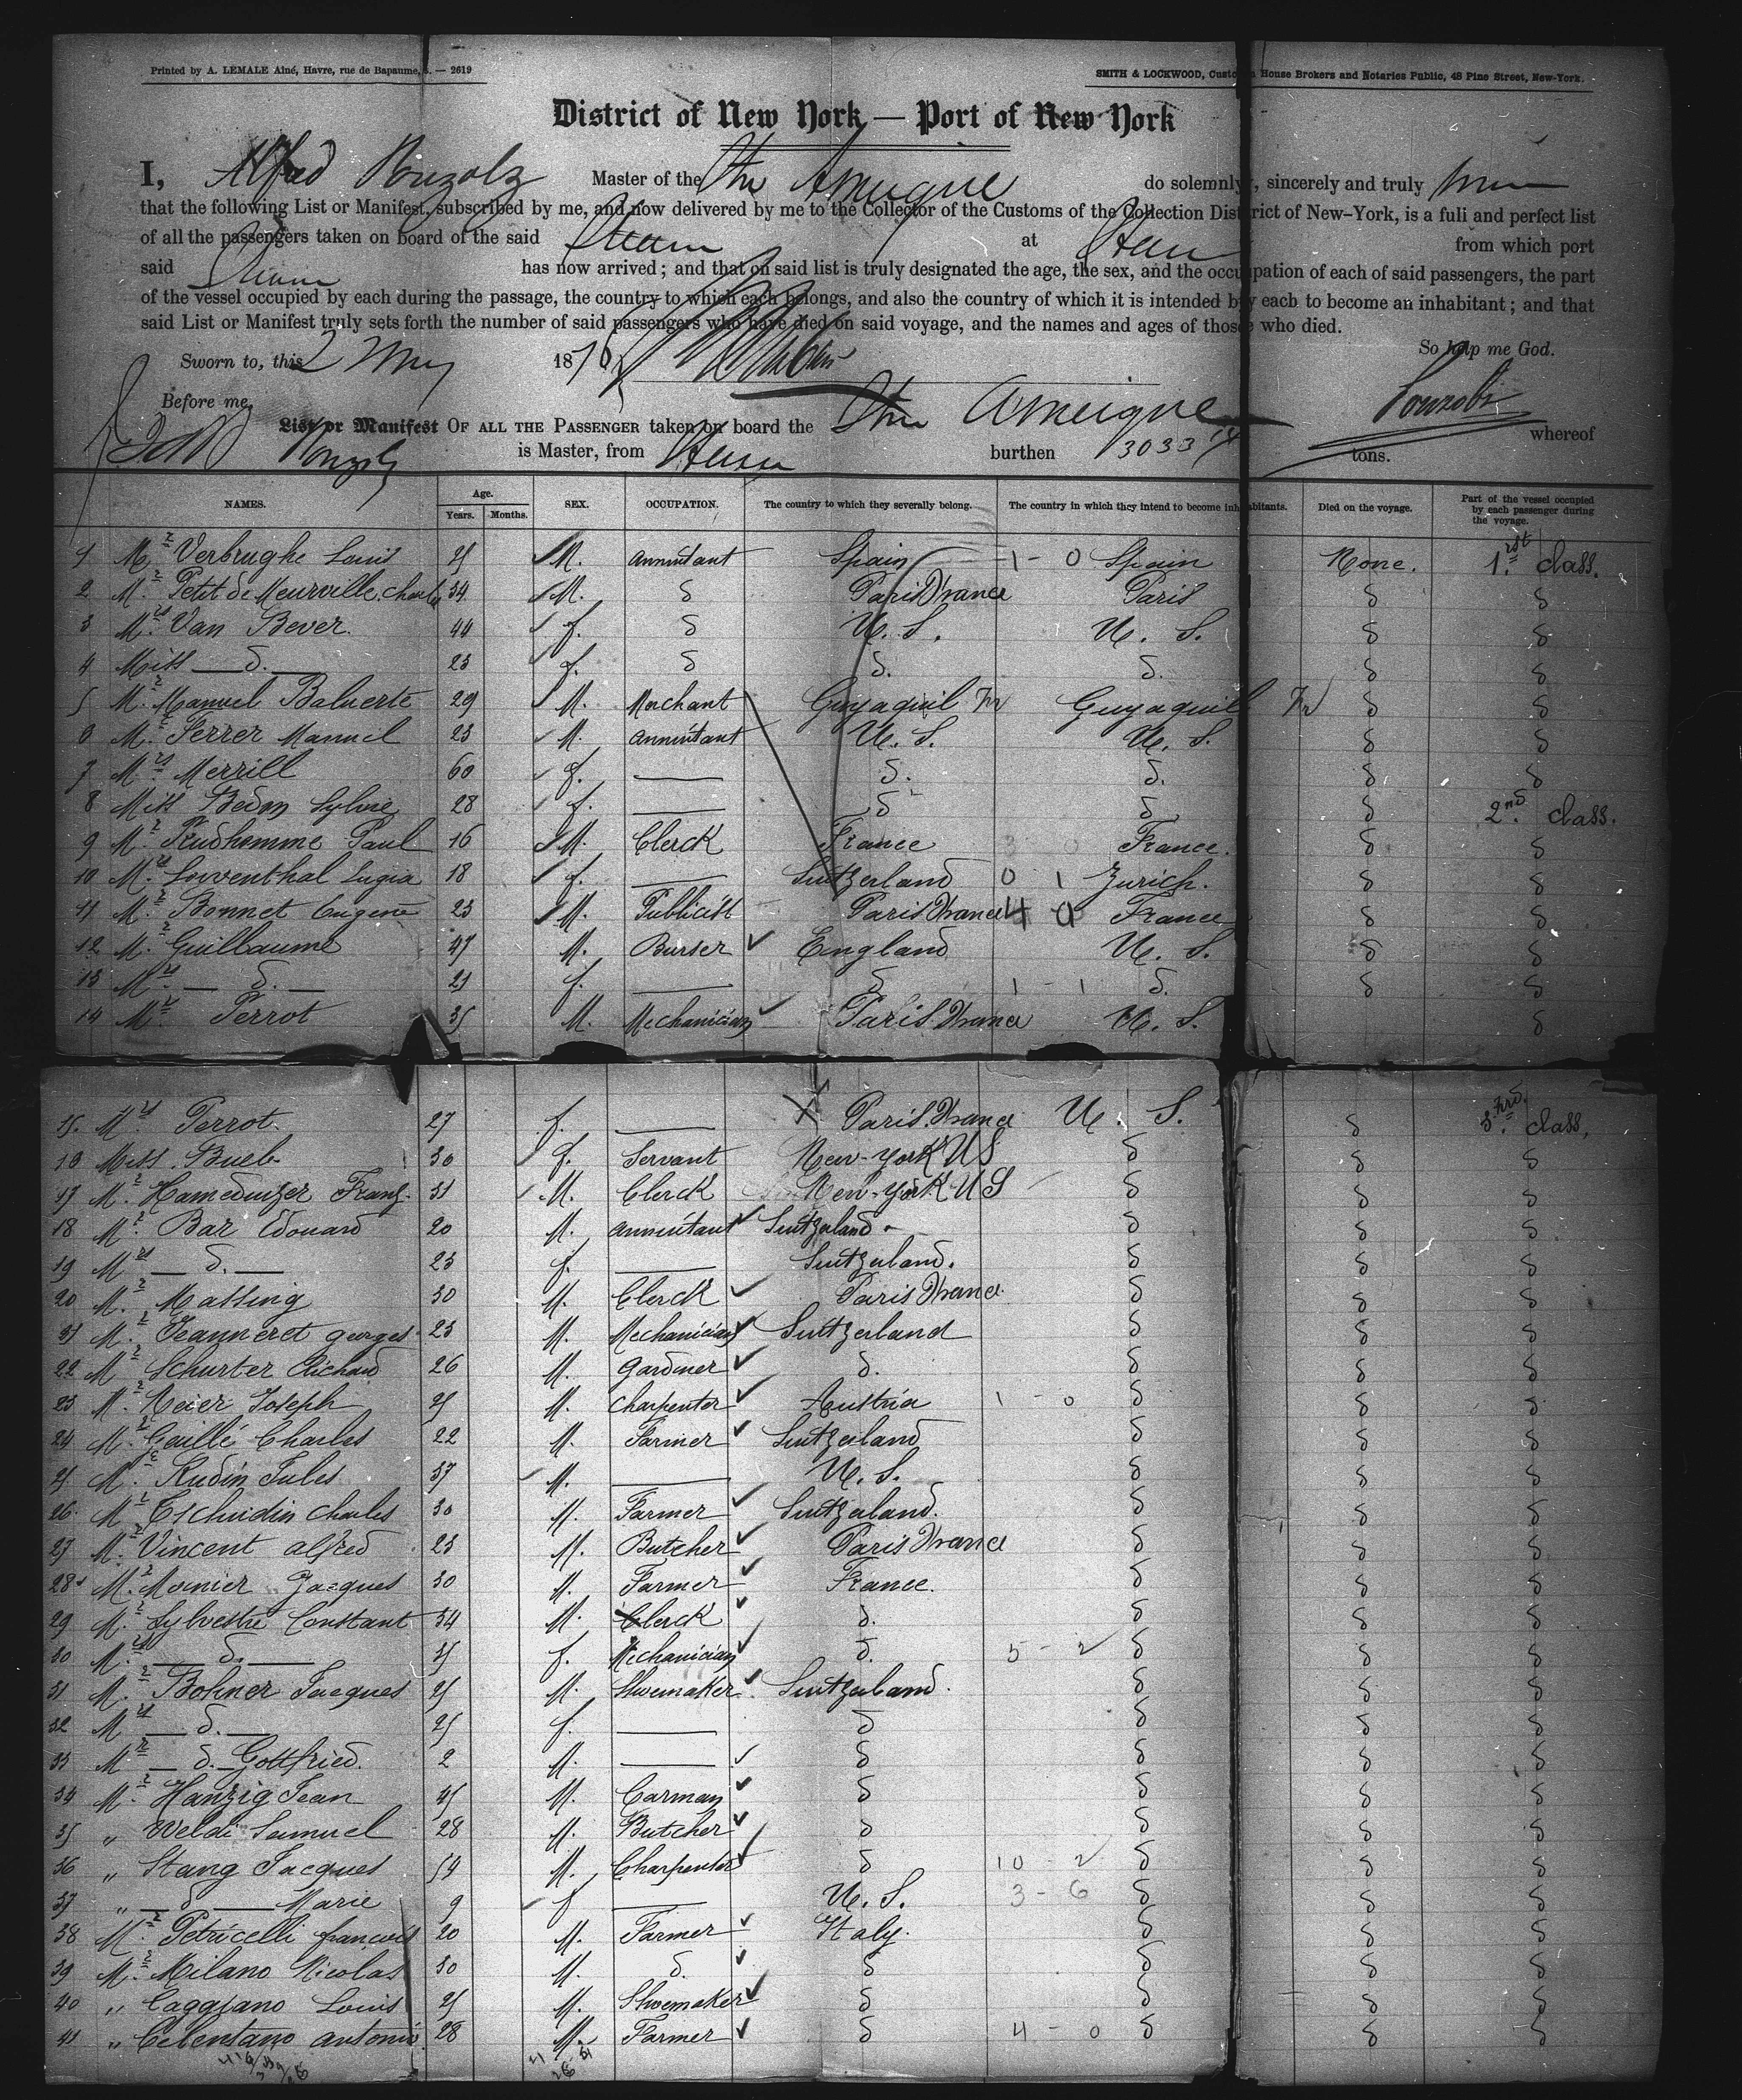 Printed by A. LEMALE Aîné, Havre, rue de Bapaume, — 2619
SMITH & LOCKWOOD, Custom House Brokers and Notaries Public, 48 Pine Street, New-York.
District of New York — Port of New York
I, Alfred Pouzolz Master of the Str Amerique do solemnly, sincerely and truly
that the following List or Manifest, subscribed by me, and now delivered by me to the Collector of the Customs of the Collection District of New-York, is a full and perfect list
of all the passengers taken on board of the said Steam at from which port
said Steam has now arrived; and that on said list is truly designated the age, the sex, and the occupation of each of said passengers, the part
of the vessel occupied by each during the passage, the country to which each belongs, and also the country of which it is intended by each to become an inhabitant; and that
said List or Manifest truly sets forth the number of said passengers who have died on said voyage, and the names and ages of those who died.
So help me God.
Sworn to, this 2 May 1876
Before me,
List or Manifest OF ALL THE PASSENGER taken on board the Str Amerique whereof
is Master, from burthen 3033 tons.
NAMES. Age. Years. Months. SEX. OCCUPATION. The country to which they severally belong. The country in which they intend to become inhabitants. Died on the voyage. Part of the vessel occupied by each passenger during the voyage.
1 Mr Verbrughe Louis 25 M. annuitant Spain 1 - 0 Spain None. 1rst class.
2 Mr Petit de Meurville, Charles 34 M. d Paris France Paris d d
3 Mrs Van Bever. 44 f. d U. S. U. S. d d
4 Miss — d. — 23 f. d d. d. d d
5 Mr Manuel Baluerte 29 M. Merchant Guyaquil Guyaquil d d
6 Mr Ferrer Manuel 23 M. annuitant U. S. U. S. d d
7 Mrs Merrill 60 f. — d. d. d d
8 Miss Bedon Sylvie 28 f. — d d d 2nd class.
9 Mr Prudhomme Paul 16 M. Clerck France 3 0 France. d d
10 Mrs Lowenthal Lugia 18 f. — Switzerland 0 1 Zurich. d d
11 Mr Bonnet Eugene 23 M. Publicist Paris France 4 0 France d d
12 Mr Guillaume 47 M. Burser England U. S. d d
13 Mrs — d. — 21 f. — d 1 - 1 d. d d
14 Mr Perrot 35 M. Mechanician Paris France U. S. d
15. Mrs Perrot 27 f. — Paris. France U. S. d 3hrd. class.
16 Miss. Bueb. 30 f. Servant New-York US d d d
17 Mr Hameduizer Franz. 31 M. Clerck New-York US d d d
18 Mr Bar Edouard 20 M. annuitant Switzerland d d d
19 Mrs — d. — 23 f. — Switzerland. d d d
20 Mr Massing 30 M. Clerck Paris France d d d
21 Mr Jeanneret georges 23 M. Mechanician Switzerland d d d
22 Mr Schurter Richard 26 M. Gardner d. d d d
23 Mr Meier Joseph 25 M. Charpenter Austria 1 - 0 d d d
24 Mr Caillé Charles 22 M. Farmer Switzerland d d d
25 Mr Rudin Jules 37 M. — U. S. d d d
26. Mr Tschuidin Charles 30 M. Farmer Switzerland. d d d
27 Mr Vincent alfred 23 M. Butcher Paris France d d d
28 Mr Mounier Jacques 30 M. Farmer France. d d d
29 Mr Sylvestre Constant 34 M. Clerck d. d d d
30 Mrs — d. — 35 f. Mechanician d. 5 - 2 d d d
31 Mr Bohner Jacques 25 M. Shoemaker Switzerland. d d d
32 Mrs — d. — 25 f. — d d d d
33 Mr — d. Gottfried. 2 M. — d d d d
34 Mr Hanzig Jean 45 M. Carman d d d d
35 " Weldi Samuel 28 M. Butcher d d d d
36 " Stang Jacques 54 M. Charpenter d 10 - 2 d d d
37 " — d — Marie 9 f — U. S. 3 - 6 d d d
38 Mr Petricelli françois 20 M. Farmer Italy. d d d
39 Mr Milano Nicolas 30 M. d. d d d d
40 " Caggiano Louis 25 M. Shoemaker d d d d
41 " Celentano antonio 28 M. Farmer d 4 - 0 d d d